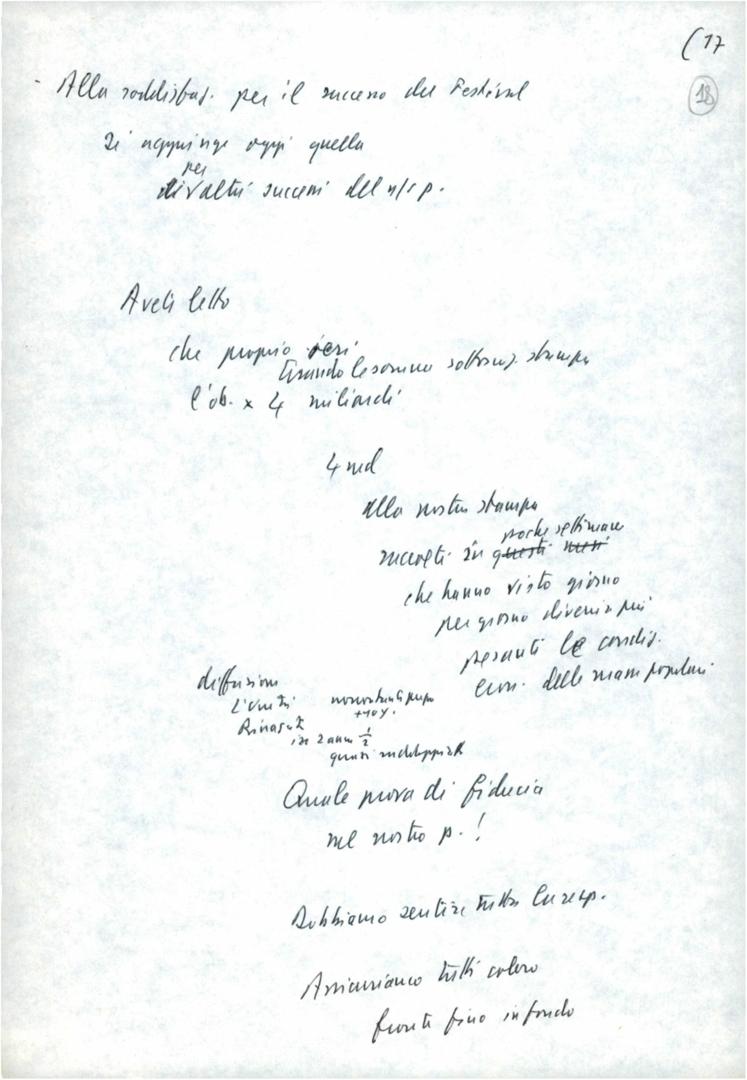 (17
18
- Alla soddisfaz. per il successo del Festival
Si aggiunge oggi quella
per
altri successi del n/s p.
Avete letto
che proprio ieri
tirando le somme sottoscr. stampa
l'ob. x 4 miliardi
4 md
alla nostra stampa
poche settimane
raccolti in questi mesi
che hanno visto giorno
per giorno divenir più
pesanti le condiz.
econ. delle masse popolari
diffusione
L'Unità nonostante
+40%.
Rinascita
in 2 anni 1/2
quasi raddoppiata
Quale prova di fiducia
nel nostro p.!
Dobbiamo sentire tutta la resp.
Assicuriamo tutti coloro
fronte fino in fondo